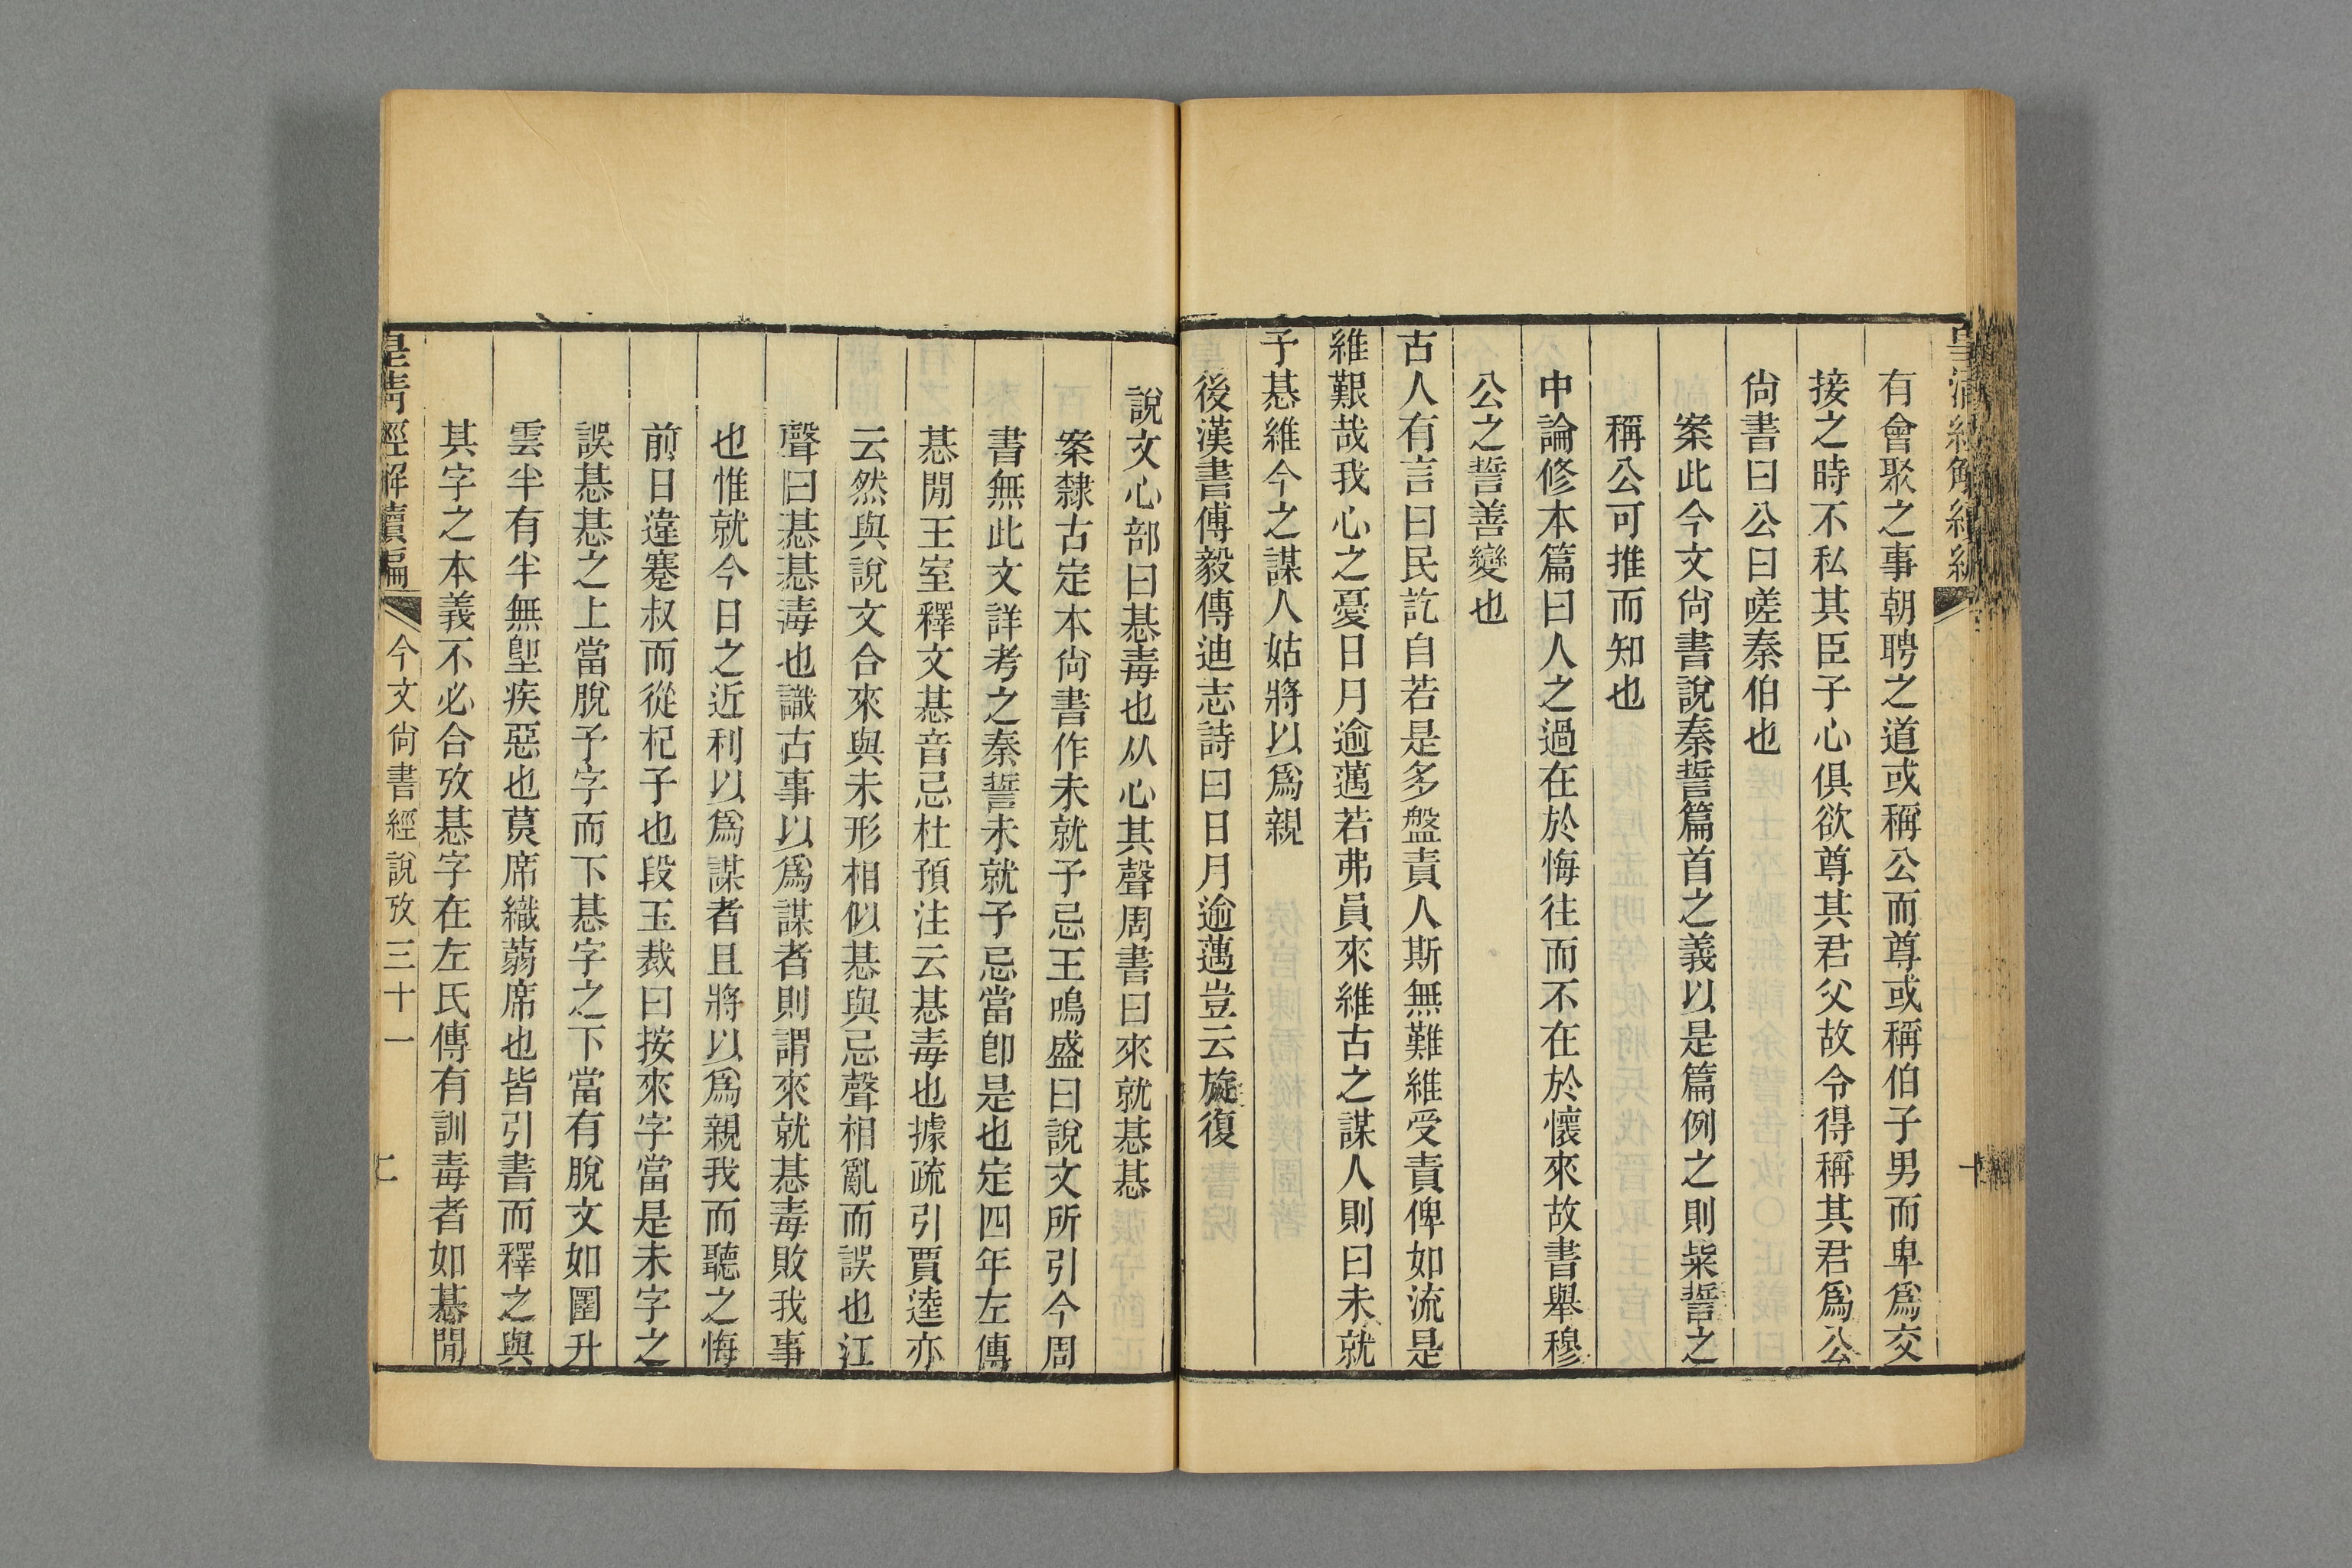 有會聚之事朝聘之道或稱公而尊或稱伯子男而卑爲交
接之時不私其臣子心俱欲尊其君父故令得稱其君爲公
尙書曰公曰嗟秦伯也
案此今文尙書說秦誓篇首之義以是篇例之則粊誓之
稱公可推而知也
中論修本篇曰人之過在於悔往而不在於懷來故書舉穆
公之誓善變也
古人有言曰民訖自若是多盤責人斯無難維受責俾如流是
維艱哉我心之憂日月逾邁若弗員來維古之謀人則曰未就
予惎維今之謀人姑將以爲親
後漢書傅毅傳迪志詩曰日月逾邁豈云旋復
說文心部曰惎毒也从心其聲周書曰來就惎惎
案隸古定本尙書作未就予忌王鳴盛曰說文所引今周
書無此文詳考之秦誓未就予忌當卽是也定四年左傳
惎閒王室釋文惎音忌杜預注云惎毒也據疏引賈逵亦
云然與說文合來與未形相似惎與忌聲相亂而誤也江
聲曰惎惎毒也識古事以爲謀者則謂來就惎毒敗我事
也惟就今日之近利以爲謀者且將以爲親我而聽之悔
前日違蹇叔而從杞子也段玉裁曰按來字當是未字之
誤惎惎之上當脫予字而下惎字之下當有脫文如圛升
雲半有半無堲疾惡也莫席織蒻席也皆引書而釋之與
其字之本義不必合攷惎字在左氏傳有訓毒者如惎閒
皇淸經解續編
今文尙書經說攷三十一
二